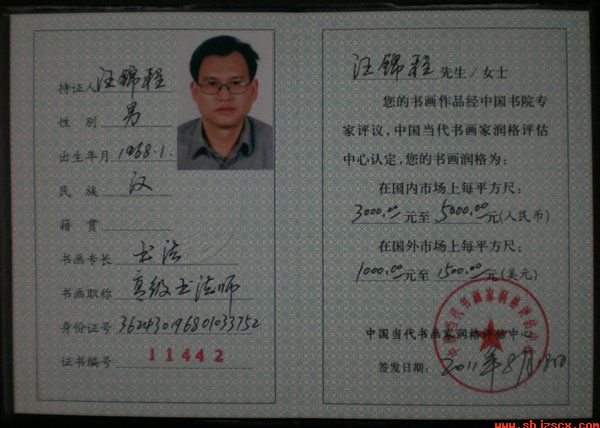 持证人 汪锦程
性别 男
出生年月 1968.1.
民族 汉
籍贯
书画专长 书法
书画职称 高级书法师
身份证号 362430196801033752
证书编号 11442
汪锦程 先生/女士
您的书画作品经中国书院专
家评议，中国当代书画家润格评估
中心认定，您的书画润格为：
在国内市场上每平方尺：
3000.00元至5000.00元(人民币)
在国外市场上每平方尺：
1000.00元至1500.00元(美元)
中国当代书画家润格评估中心
中国当代书画家润格评估中心
签发日期：2011年8月18日